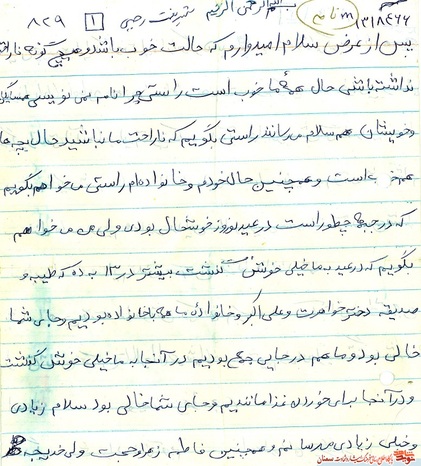 بسم الله الرحمن الرحیم
نامه
۱
۸۲۹
پس از عرض سلام امیدوارم که حالت خوب باشد و هیچ گونه ناراحتی
نداشته باشی حال همهٔ ما خوب است راستی چرا نامه نمی نویسی همسایگان
وخویشان هم سلام می رسانند راستی بگویم که ناراحت ما نباشید حال بچه ها
هم است و همچنین حال خودم و خانواده ام راستی می خواهم بگویم
که در جبهه چطور است در عید نوروز خوشحال بودی ولی من می خواهم
بگویم که در عید به ما خیلی خوش گذشت بیشتر در ۱۳ بدر که طیبه و
صدیقه دختر خواهرت و علی اکبر و خانوادهٔ ما همه با خانواده بودیم و جای شما
خالی بود و ما هم در جایی جمع بودیم در آنجا به ما خیلی خوش گذشت
و در آنجا برای خوردن غذا ماندیم و جای شما خالی بود سلام زیادی
وخیلی زیادی می رسانم و همچنین فاطمه زهرا و حجت ولی خدیجه